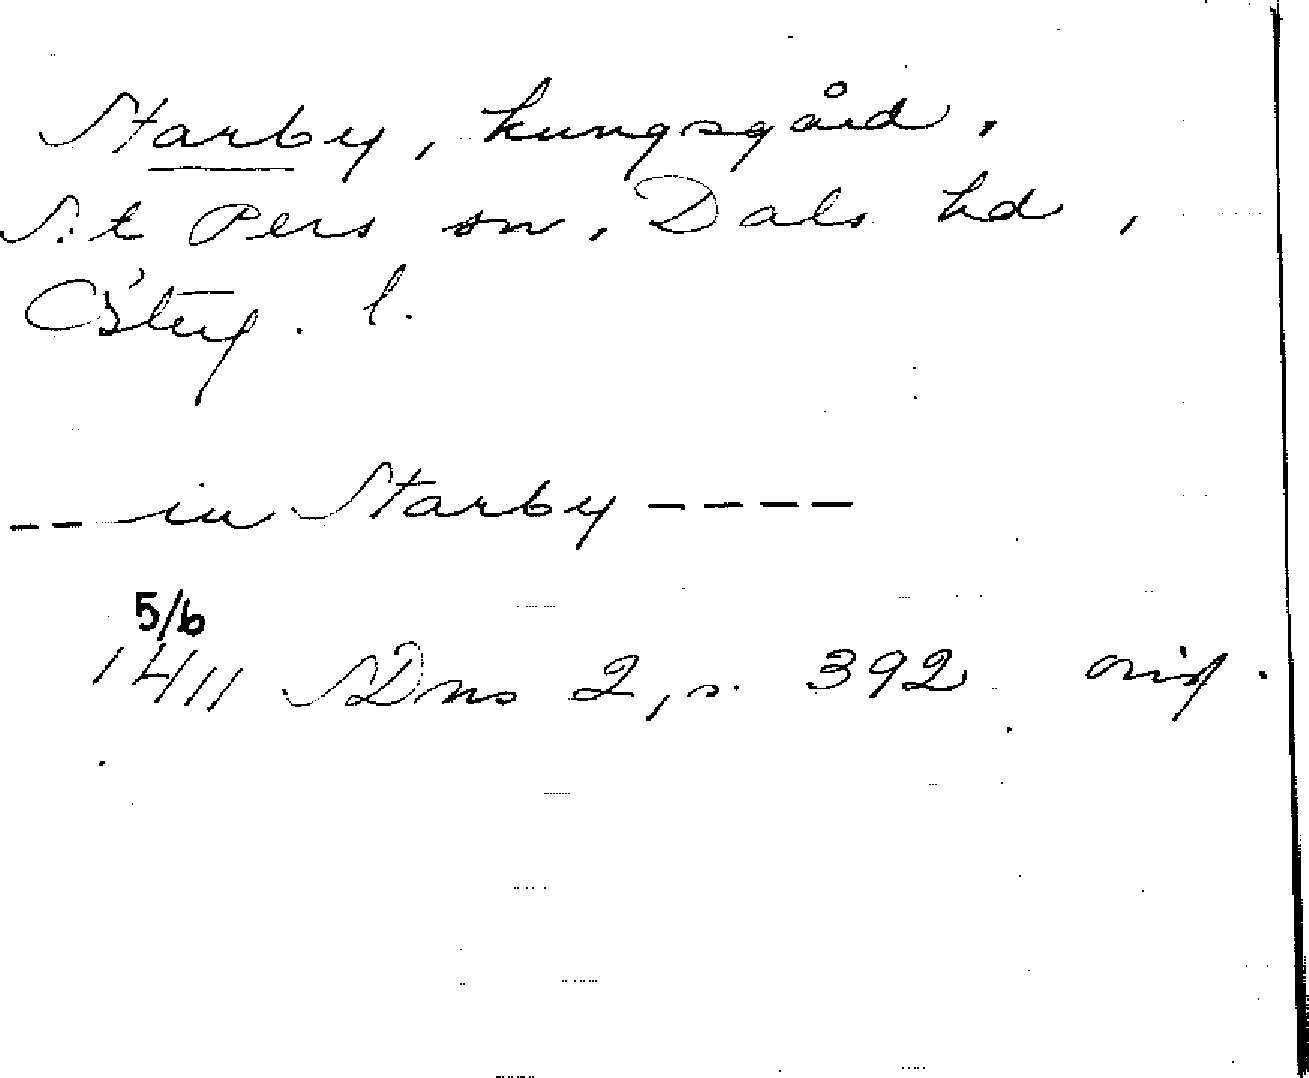 Starby, kungsgård.
S:t Pers sn, Dals hd,
Österg. l.
-- in Starby ----
5/6
1411 SDns 2, s. 392 orig.